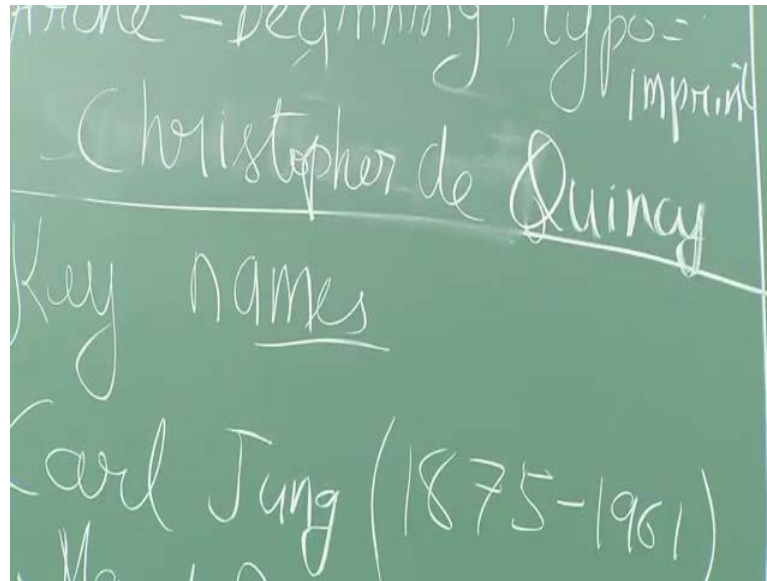 Arche - Beginning, typo=
imprint
Christopher de Quincy
Key names
Carl Jung (1875-1961)